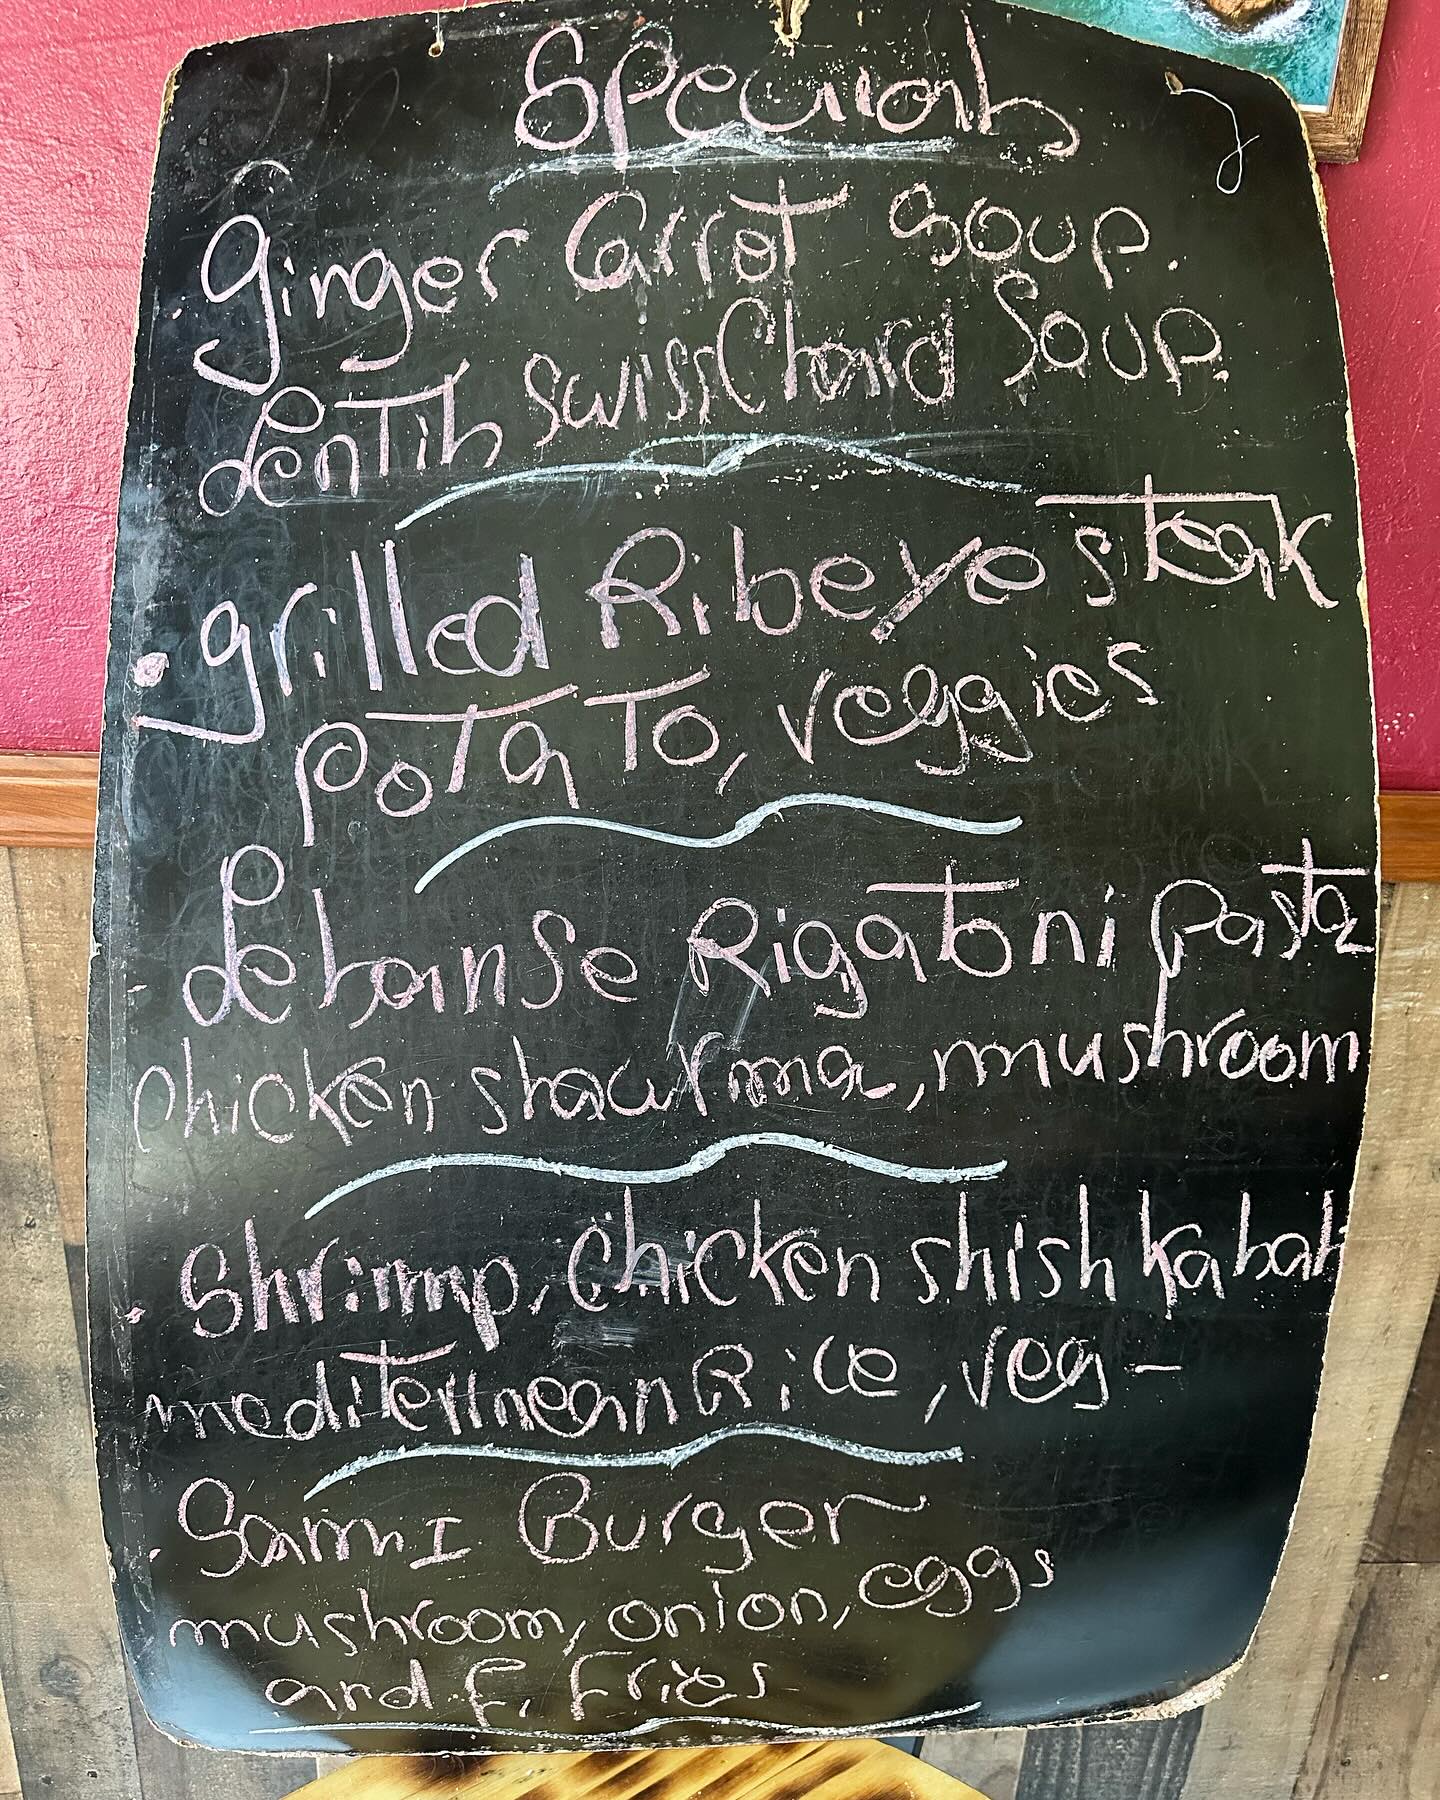 Specials
Ginger Carrot Soup.
Lentils Swiss Chard Soup.
. grilled Ribeye steak
Potato, veggies
- Lebanse Rigatoni Pasta
chicken shawrma, mushroom
. Shrimp, chicken shish kabab
mediterrnean Rice, veg -
. Sami Burger
mushroom, onion, eggs
and F. Fries